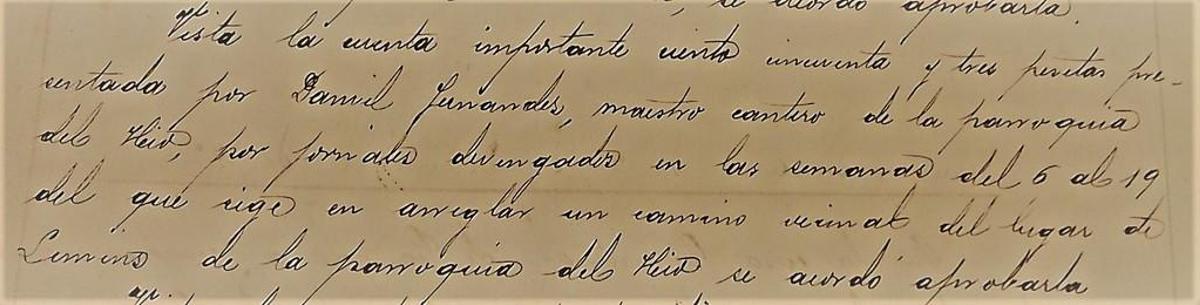 se acordó aprobarla.
Vista la cuenta importante ciento cincuenta y tres pesetas pre-
sentada por Daniel Fernandez, maestro cantero de la parroquia
del Hío, por jornales devengados en las semanas del 6 al 19
del que rige en arreglar un camino vecinal del lugar de
de la parroquia del Hío se acordó aprobarla